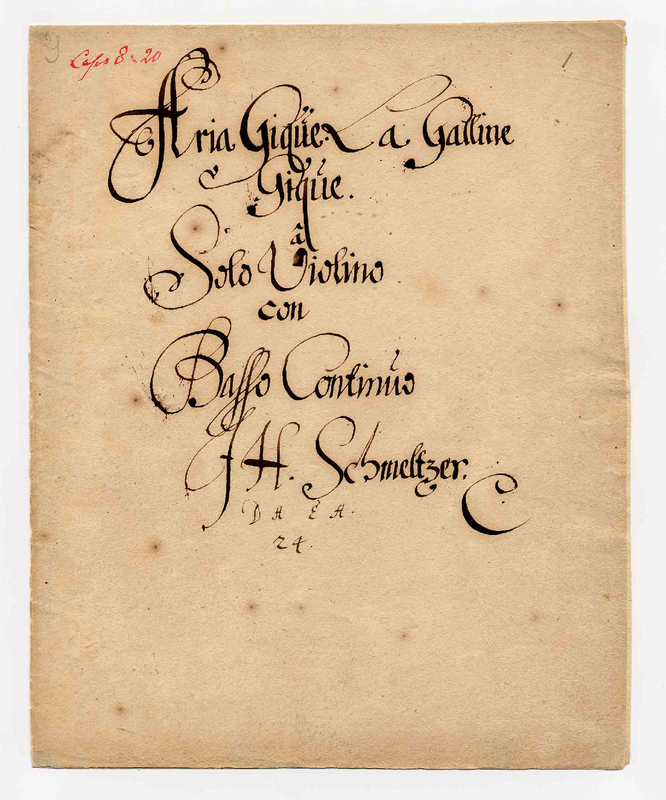 Caps 8:20
1
Aria Giqüe. La Galline
Giqüe.
â
Solo Violino
con
Basso Continüo
J H. Schmeltzer.
D A E A.
24.